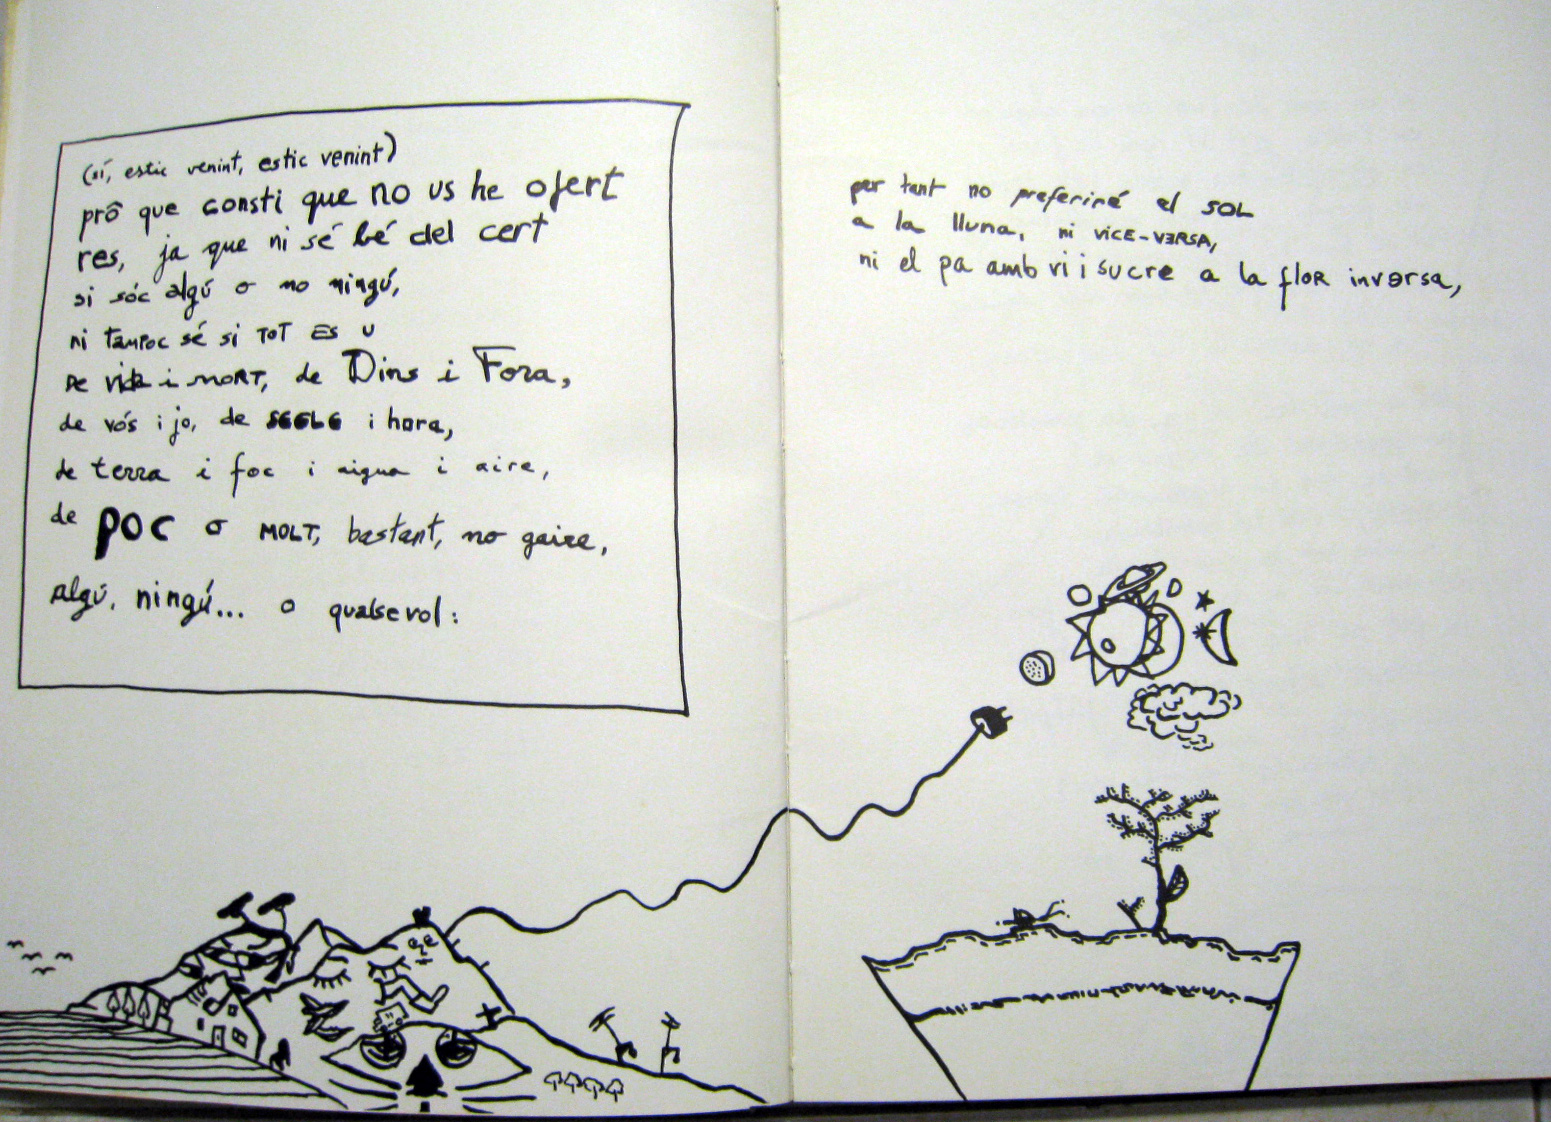 (sí, estic venint, estic venint)
prô que consti que no us he ofert
res, ja que ni sé bé del cert
si sóc algú o no ningú,
ni tampoc sé si TOT ES U
de vida i MORT, de Dins i Fora,
de vós i jo, de SEGLE i hora,
de terra i foc i aigua i aire,
de POC o MOLT, bastant, no gaire,
algú, ningú... o qualsevol:
per tant no preferiré el SOL
a la lluna, ni VICE-VERSA,
ni el pa amb vi i sucre a la flor inversa,